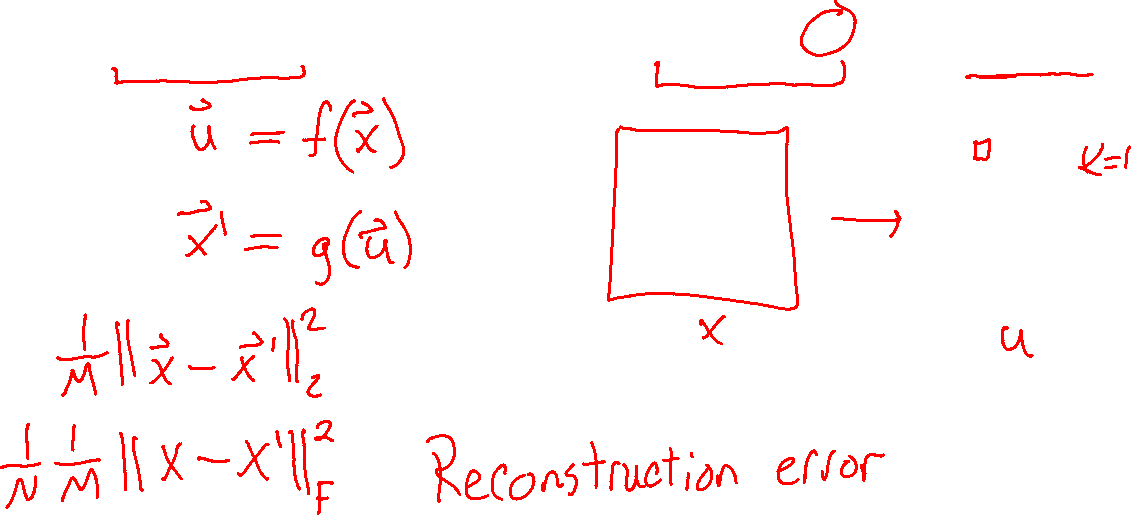 $\vec{u} = f(\vec{x})$
$\vec{x}' = g(\vec{u})$
$\frac{1}{M} \|\vec{x} - \vec{x}'\|_2^2$
$\frac{1}{N} \frac{1}{M} \|X - X'\|_F^2$ Reconstruction error
K=1
X
u